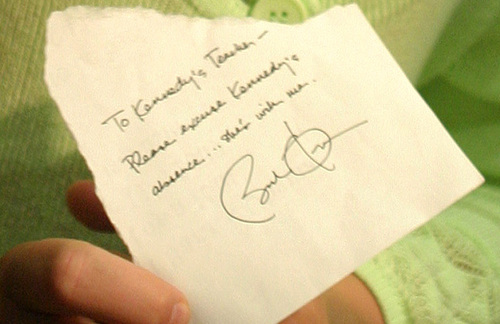 To Kennedy's Teacher—
Please excuse Kennedy's
absence... she's with me.